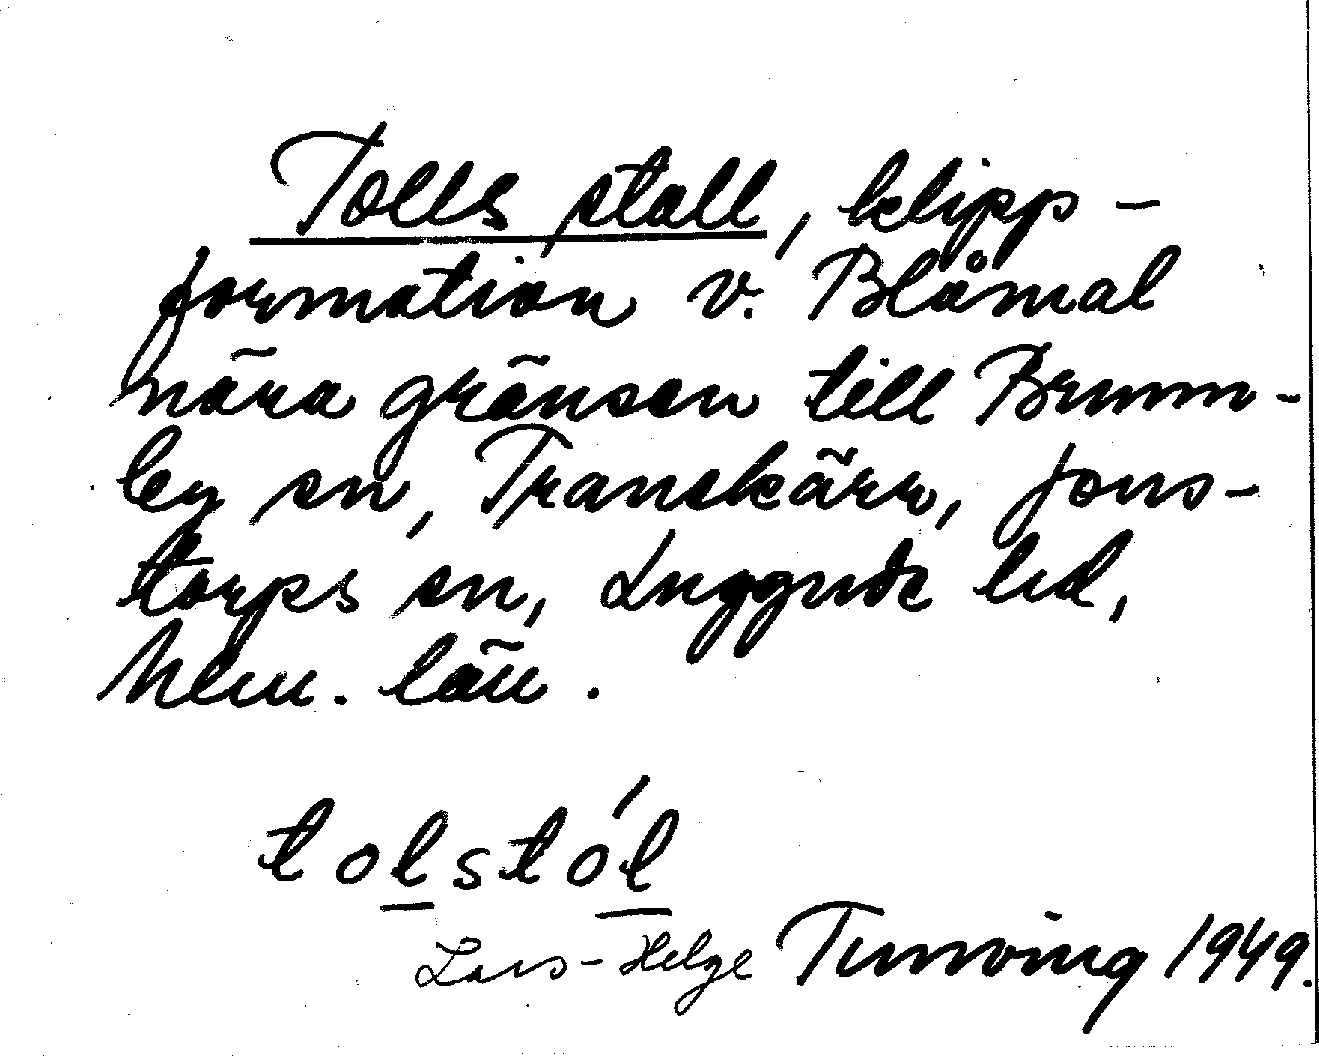 Tolls stall, klipp-
formation v. Blåmal
nära gränsen till Brunn-
by sn, Transkärr, Jons-
torps sn, Luggude hd,
Mlm. län.
tolstól
Lars-Helge Tunving 1949.